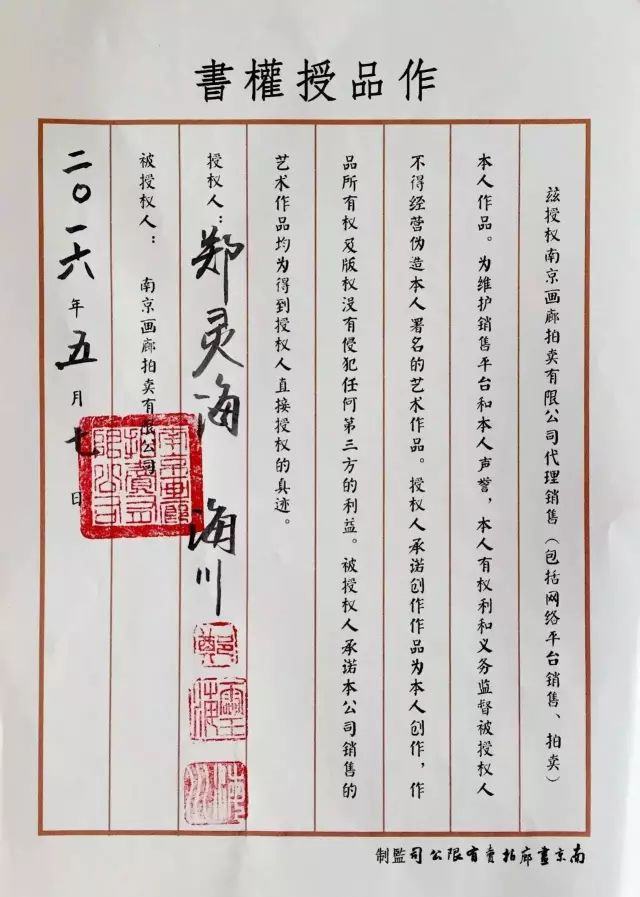 作品授權書
兹授权南京画廊拍卖有限公司代理销售（包括网络平台销售、拍卖）
本人作品。为维护销售平台和本人声誉，本人有权利和义务监督被授权人
不得经营伪造本人署名的艺术作品。授权人承诺创作作品为本人创作，作
品所有权及版权没有侵犯任何第三方的利益。被授权人承诺本公司销售的
艺术作品均为得到授权人直接授权的真迹。
授权人：郑灵海 海川
被授权人：南京画廊拍卖有限公司
二〇一六年五月七日
南京畫廊拍賣有限公司
鄭
靈海
南京畫廊拍賣有限公司監制